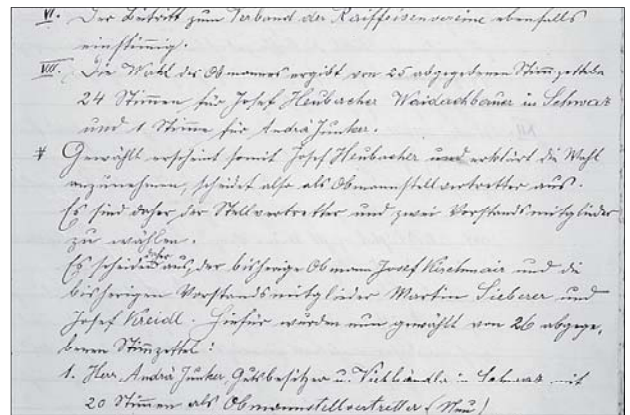 VI. Der Beitritt zum Verband der Raiffeisenvereine ebenfalls
einstimmig.
VII. Die Wahl des Obmannes ergibt von 25 abgegebenen Stimmzetteln
24 Stimmen für Josef Heubacher Waiderchbauer in Schwaz
und 1 Stimme für Andrä Junker.
Gewählt erscheint somit Josef Heubacher und erklärt die Wahl
anzunehmen, scheidet also als Obmannstellvertretter aus.
Es sind daher, der Stellvertretter und zwei Vorstandsmitglieder
zu wählen.
Es scheiden daher aus, der bisherige Obmann Josef Kirchmair und die
bisherigen Vorstandsmitglieder Martin Lieberer und
Josef Kreidl. Hiefür wurden nun gewählt von 26 abgege-
benen Stimmzettel:
1. Herr Andrä Junker Gutsbesitzer u. Viehhändler in Schwaz mit
20 Stimmen als Obmannstellvertretter (Neu)